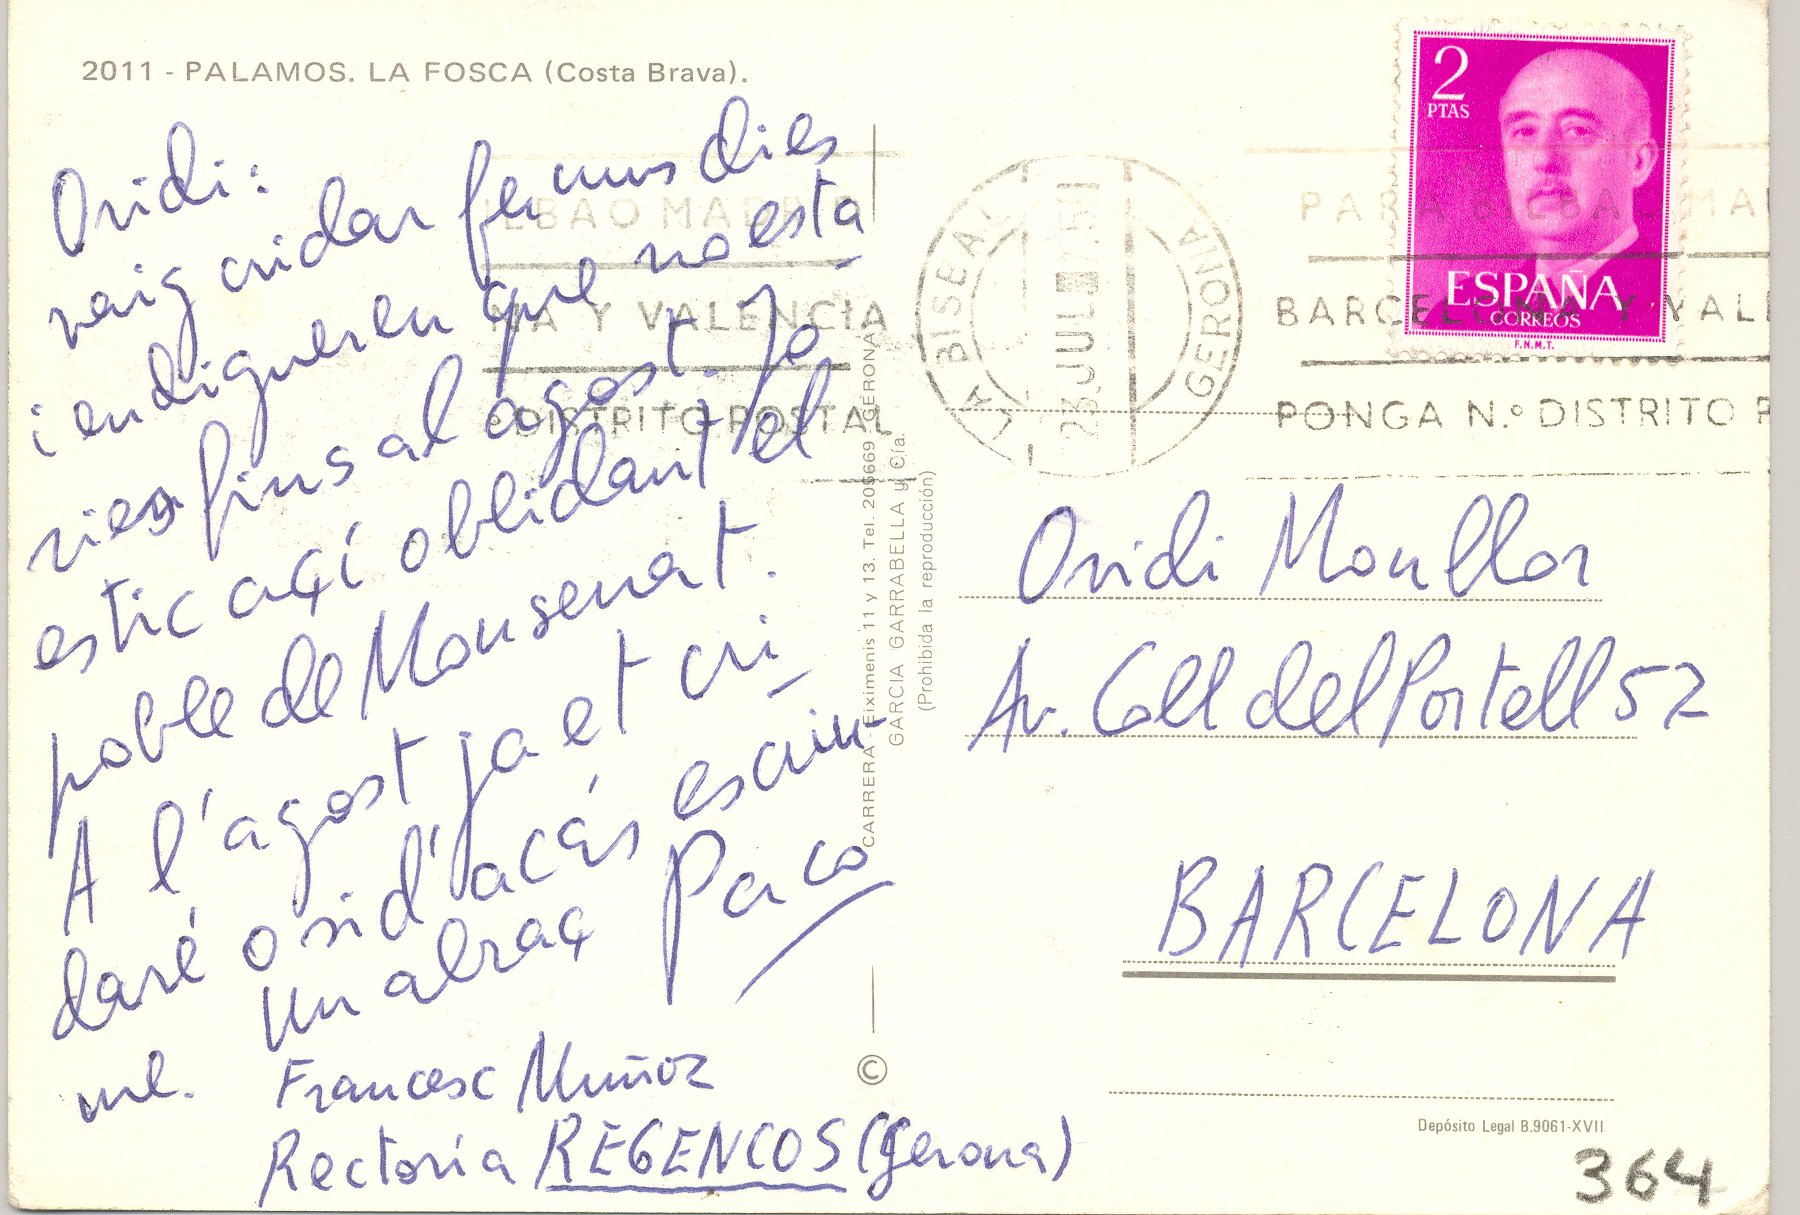 2011 - PALAMOS. LA FOSCA (Costa Brava).
Ovidi:
vaig cridar fa uns dies
i en digueren que no esta
ries fins al agost. Jo
estic açí oblidant el
poble de Monserrat.
A l'agost ja et cri
daré o si d'acás escriu
me. Un abraç Paco
Francesc Muñoz
Rectoria REGENCOS (Gerona)
CARRERA - Eiximenis 11 y 13. Tel. 205669 - GERONA
GARCIA GARRABELLA y Cía.
(Prohibida la reproducción)
©
LBAO MADRID
NA Y VALENCIA
º DISTRITO POSTAL
LA BISBAL GERONA
23 JUL
PARA BILBAO MA
BARCELONA Y VALE
PONGA N.º DISTRITO P
2
PTAS
ESPAÑA
CORREOS
F.N.M.T.
Ovidi Monllor
Av. Coll del Portell 52
BARCELONA
Depósito Legal B.9061-XVII
364